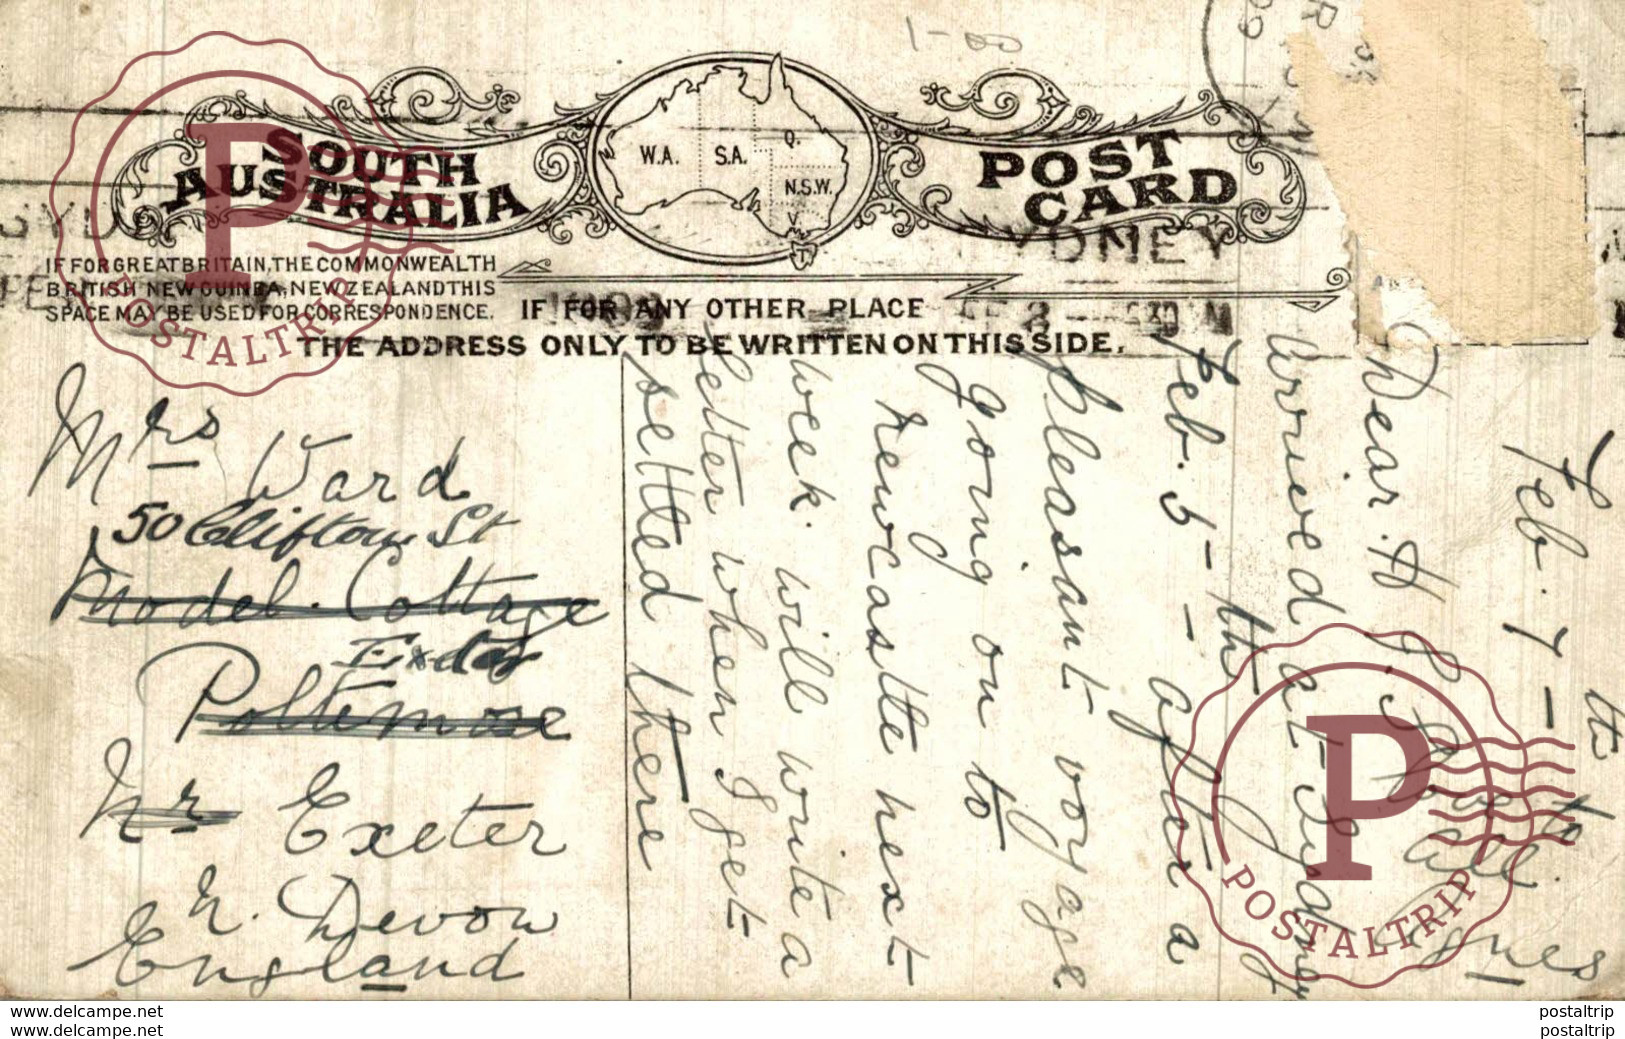 1-00
SOUTH
AUSTRALIA
W.A. S.A. Q.
N.S.W.
V.
T
POST
CARD
SYDNEY
IF FOR GREAT BRITAIN, THE COMMONWEALTH
BRITISH NEW GUINEA, NEW ZEALAND THIS
SPACE MAY BE USED FOR CORRESPONDENCE.
IF FOR ANY OTHER PLACE
THE ADDRESS ONLY TO BE WRITTEN ON THIS SIDE.
Mrs Ward
50 Clifton St
Model Cottage
Exeter
Poltimore
Nr Exeter
N. Devon
England
Feb. 7-th
Dear H
arrived at Sydney
Feb. 5-th after a
pleasant voyage
going on to
Newcastle next
week. will write a
letter when I get
settled there
Love to
all.
Agnes
P
POSTALTRIP
P
POSTALTRIP
postaltrip
postaltrip
postaltrip
postaltrip